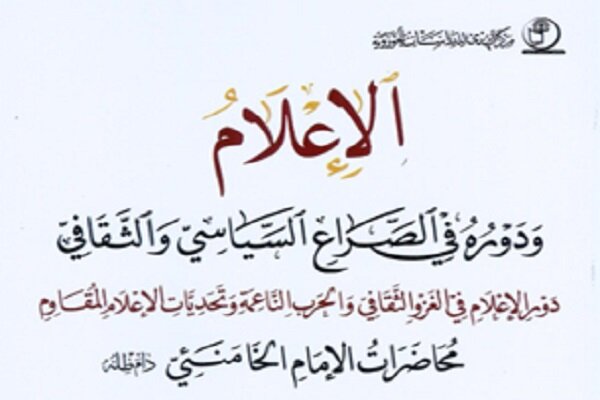 الإعلام
ودوره في الصراع السياسي والثقافي
دور الإعلام في الغزو الثقافي والحرب الناعمة وتحديات الإعلام المقاوم
محاضرات الإمام الخامنئي دام ظله